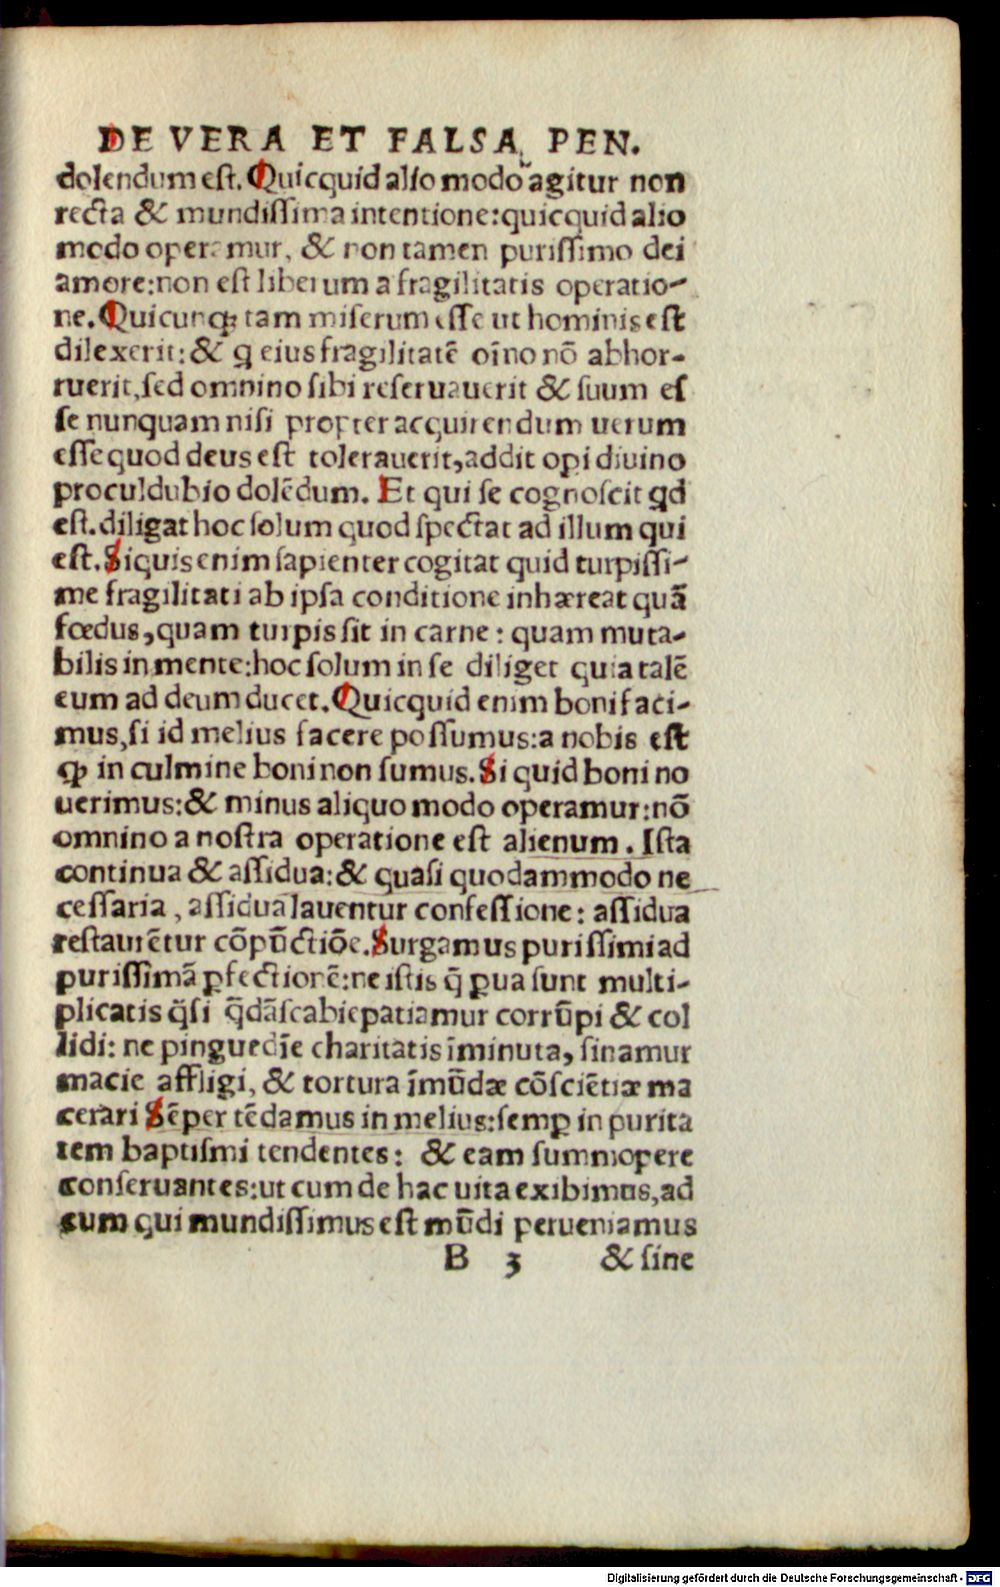 DE VERA ET FALSA PEN.
dolendum est. Quicquid alio modo agitur non
recta & mundissima intentione:quicquid alio
modo operamur, & non tamen purissimo dei
amore:non est liberum a fragilitatis operatio-
ne. Quicunq; tam miserum esse ut hominis est
dilexerit: & q eius fragilitatē oīno nō abhor-
ruerit, sed omnino sibi reseruauerit & suum es
se nunquam nisi propter acquirendum uerum
esse quod deus est tolerauerit, addit opi diuino
proculdubio dolēdum. Et qui se cognoscit qd
est. diligat hoc solum quod spectat ad illum qui
est. Siquis enim sapienter cogitat quid turpissi-
me fragilitati ab ipsa conditione inhæreat quā
fœdus, quam turpis sit in carne: quam muta-
bilis in mente:hoc solum in se diliget quia talē
eum ad deum ducet. Quicquid enim boni faci-
mus, si id melius facere possumus:a nobis est
ꝙ in culmine boni non sumus. Si quid boni no
uerimus:& minus aliquo modo operamur:nō
omnino a nostra operatione est alienum. Ista
continua & assidua:& quasi quodammodo ne
cessaria, assidua lauentur confessione: assidua
restaurētur cōpūctiōe. Surgamus purissimi ad
purissimā ꝑfectionē:ne istis q̄ ꝑua sunt multi-
plicatis q̄si q̄dā scabie patiamur corrūpi & col
lidi: ne pinguedīe charitatis īminuta, sinamur
macie affligi, & tortura īmūdæ cōsciētiæ ma
cerari Sēper tēdamus in melius:semꝑ in purita
tem baptismi tendentes: & eam summopere
conseruantes:ut cum de hac uita exibimus, ad
eum qui mundissimus est mūdi perueniamus
B 3 & sine
Digitalisierung gefördert durch die Deutsche Forschungsgemeinschaft - DFG